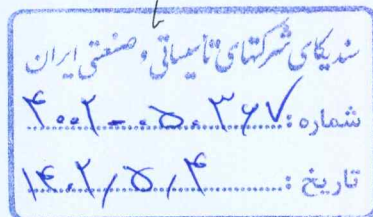 سندیکای شرکتهای تاسیساتی و صنعتی ایران
شماره: ۴۰۰۲-۰۵۰۳۶۷
تاریخ: ۱۴۰۲/۵/۴